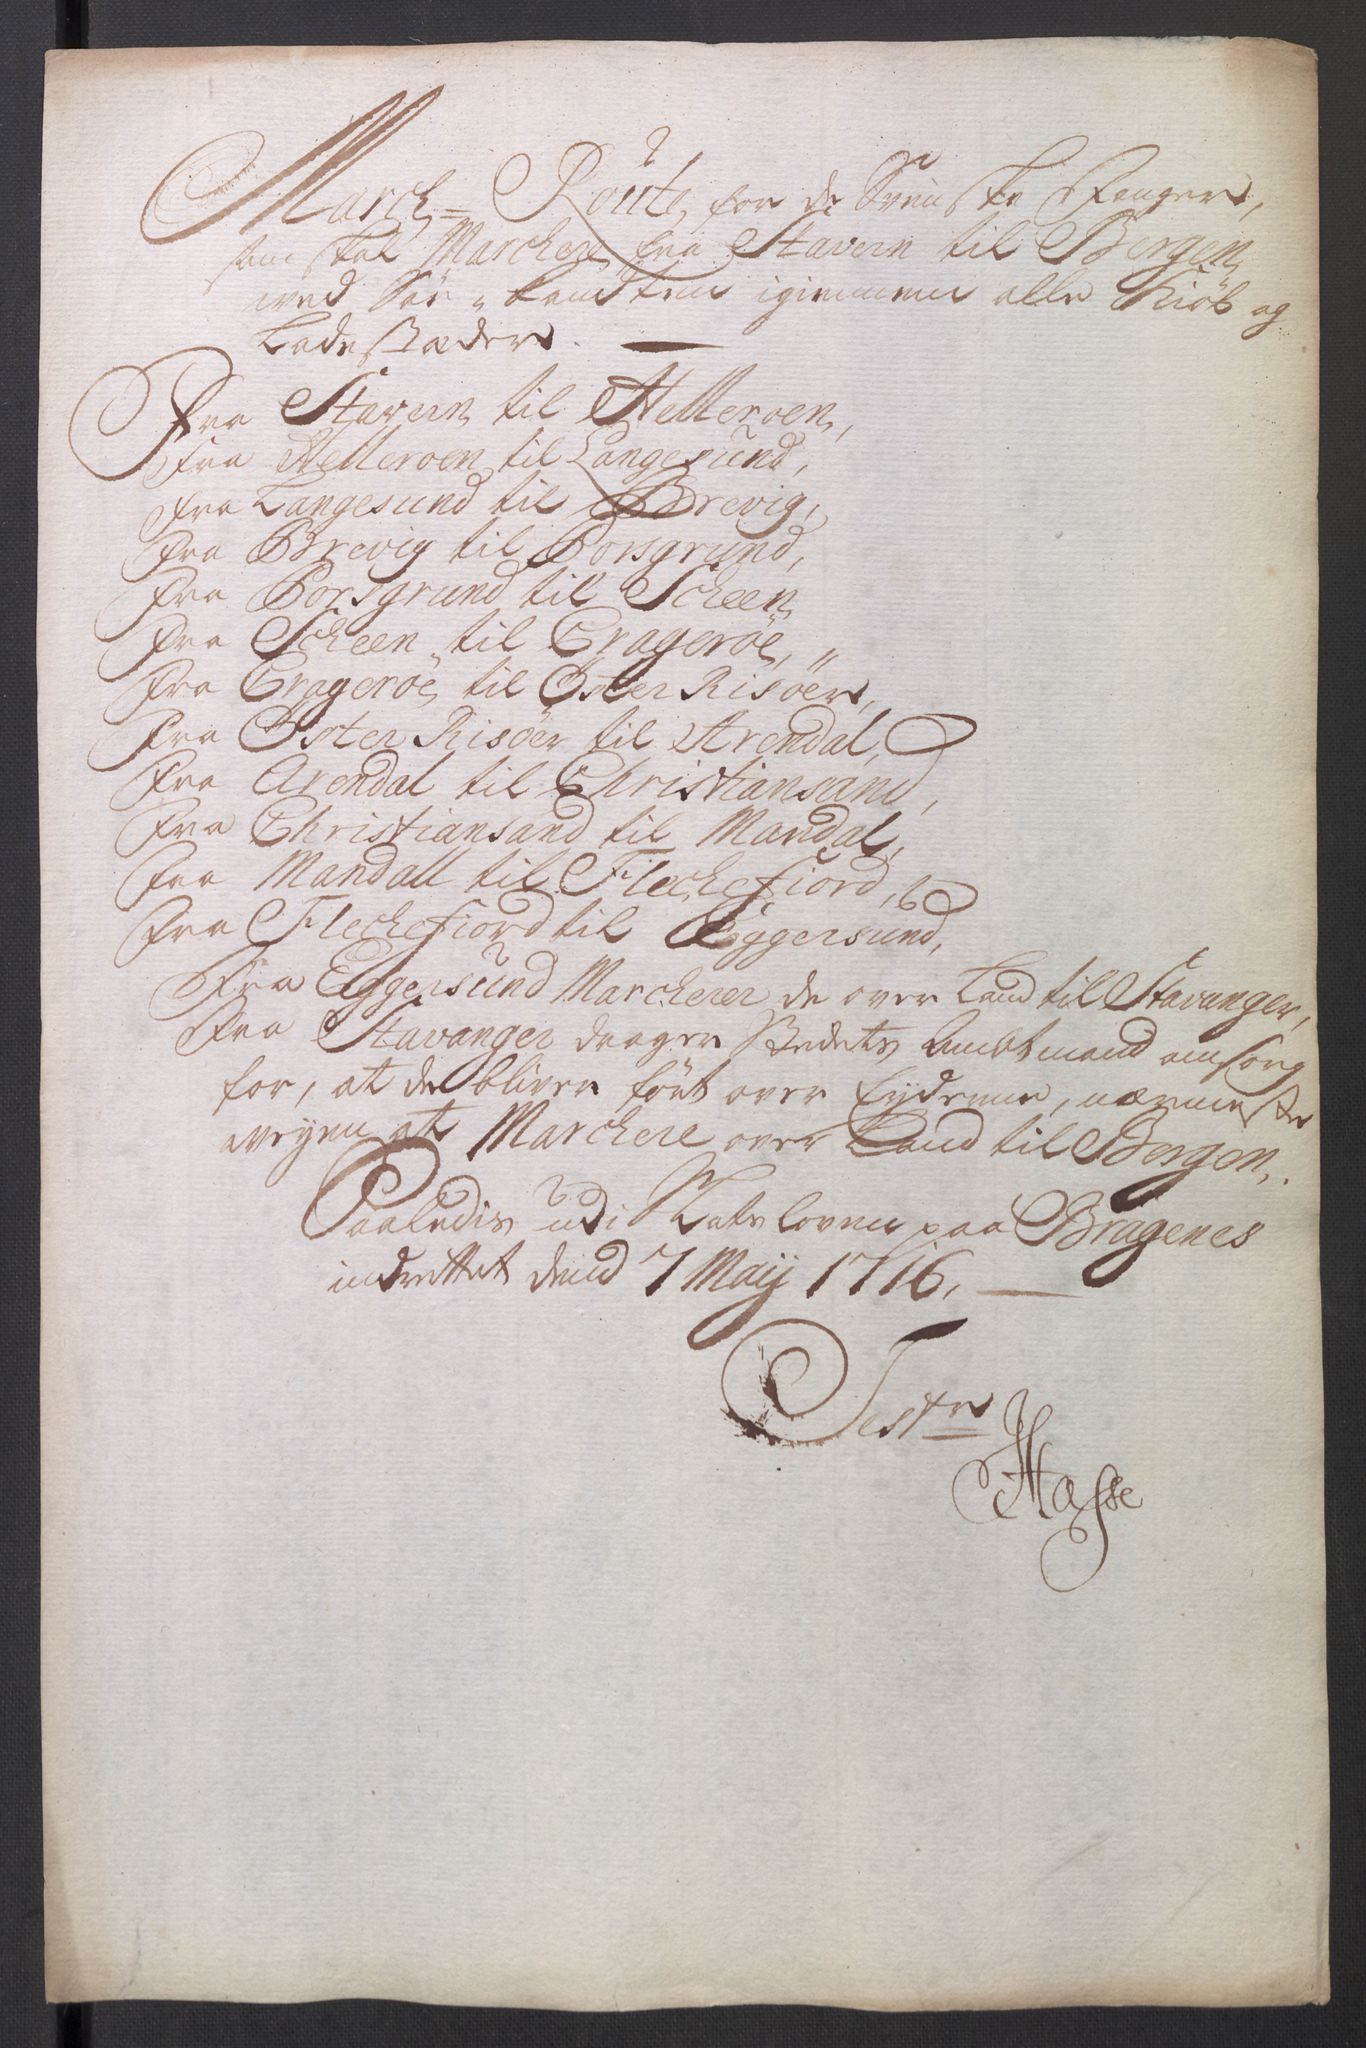 March-Roúte, for de Svenske Fanger,
som skal Marchere fra Stavern til Bergen,
ved Söe-Kandten igiennem alle Kiöb og
Ladestæder.
Fra Stavern til Helleroen,
Fra Helleroen til Langesund,
Fra Langesund til Brevig,
Fra Brevig til Porsgrund,
Fra Porsgrund til Scheen,
Fra Scheen til Crageröe,
Fra Crageröe til Öster Risöer,
Fra Öster Risöer til Arendal,
Fra Arendal til Christiansand,
Fra Christiansand til Mandal,
Fra Mandall til Flechefiord,
Fra Flechefiord til Eggersund,
Fra Eggersund Marcherer de over Land til Stavanger,
Fra Stavanger drager Stedets Ambtmand omsorg
for, at de bliver fört over fyderne, nærmeste
weyen at Marchere over Land til Bergen.
Saaledis udi Slotsloven paa Bragenes
indrettet dend 7 Maij 1716.
Test
Hasse